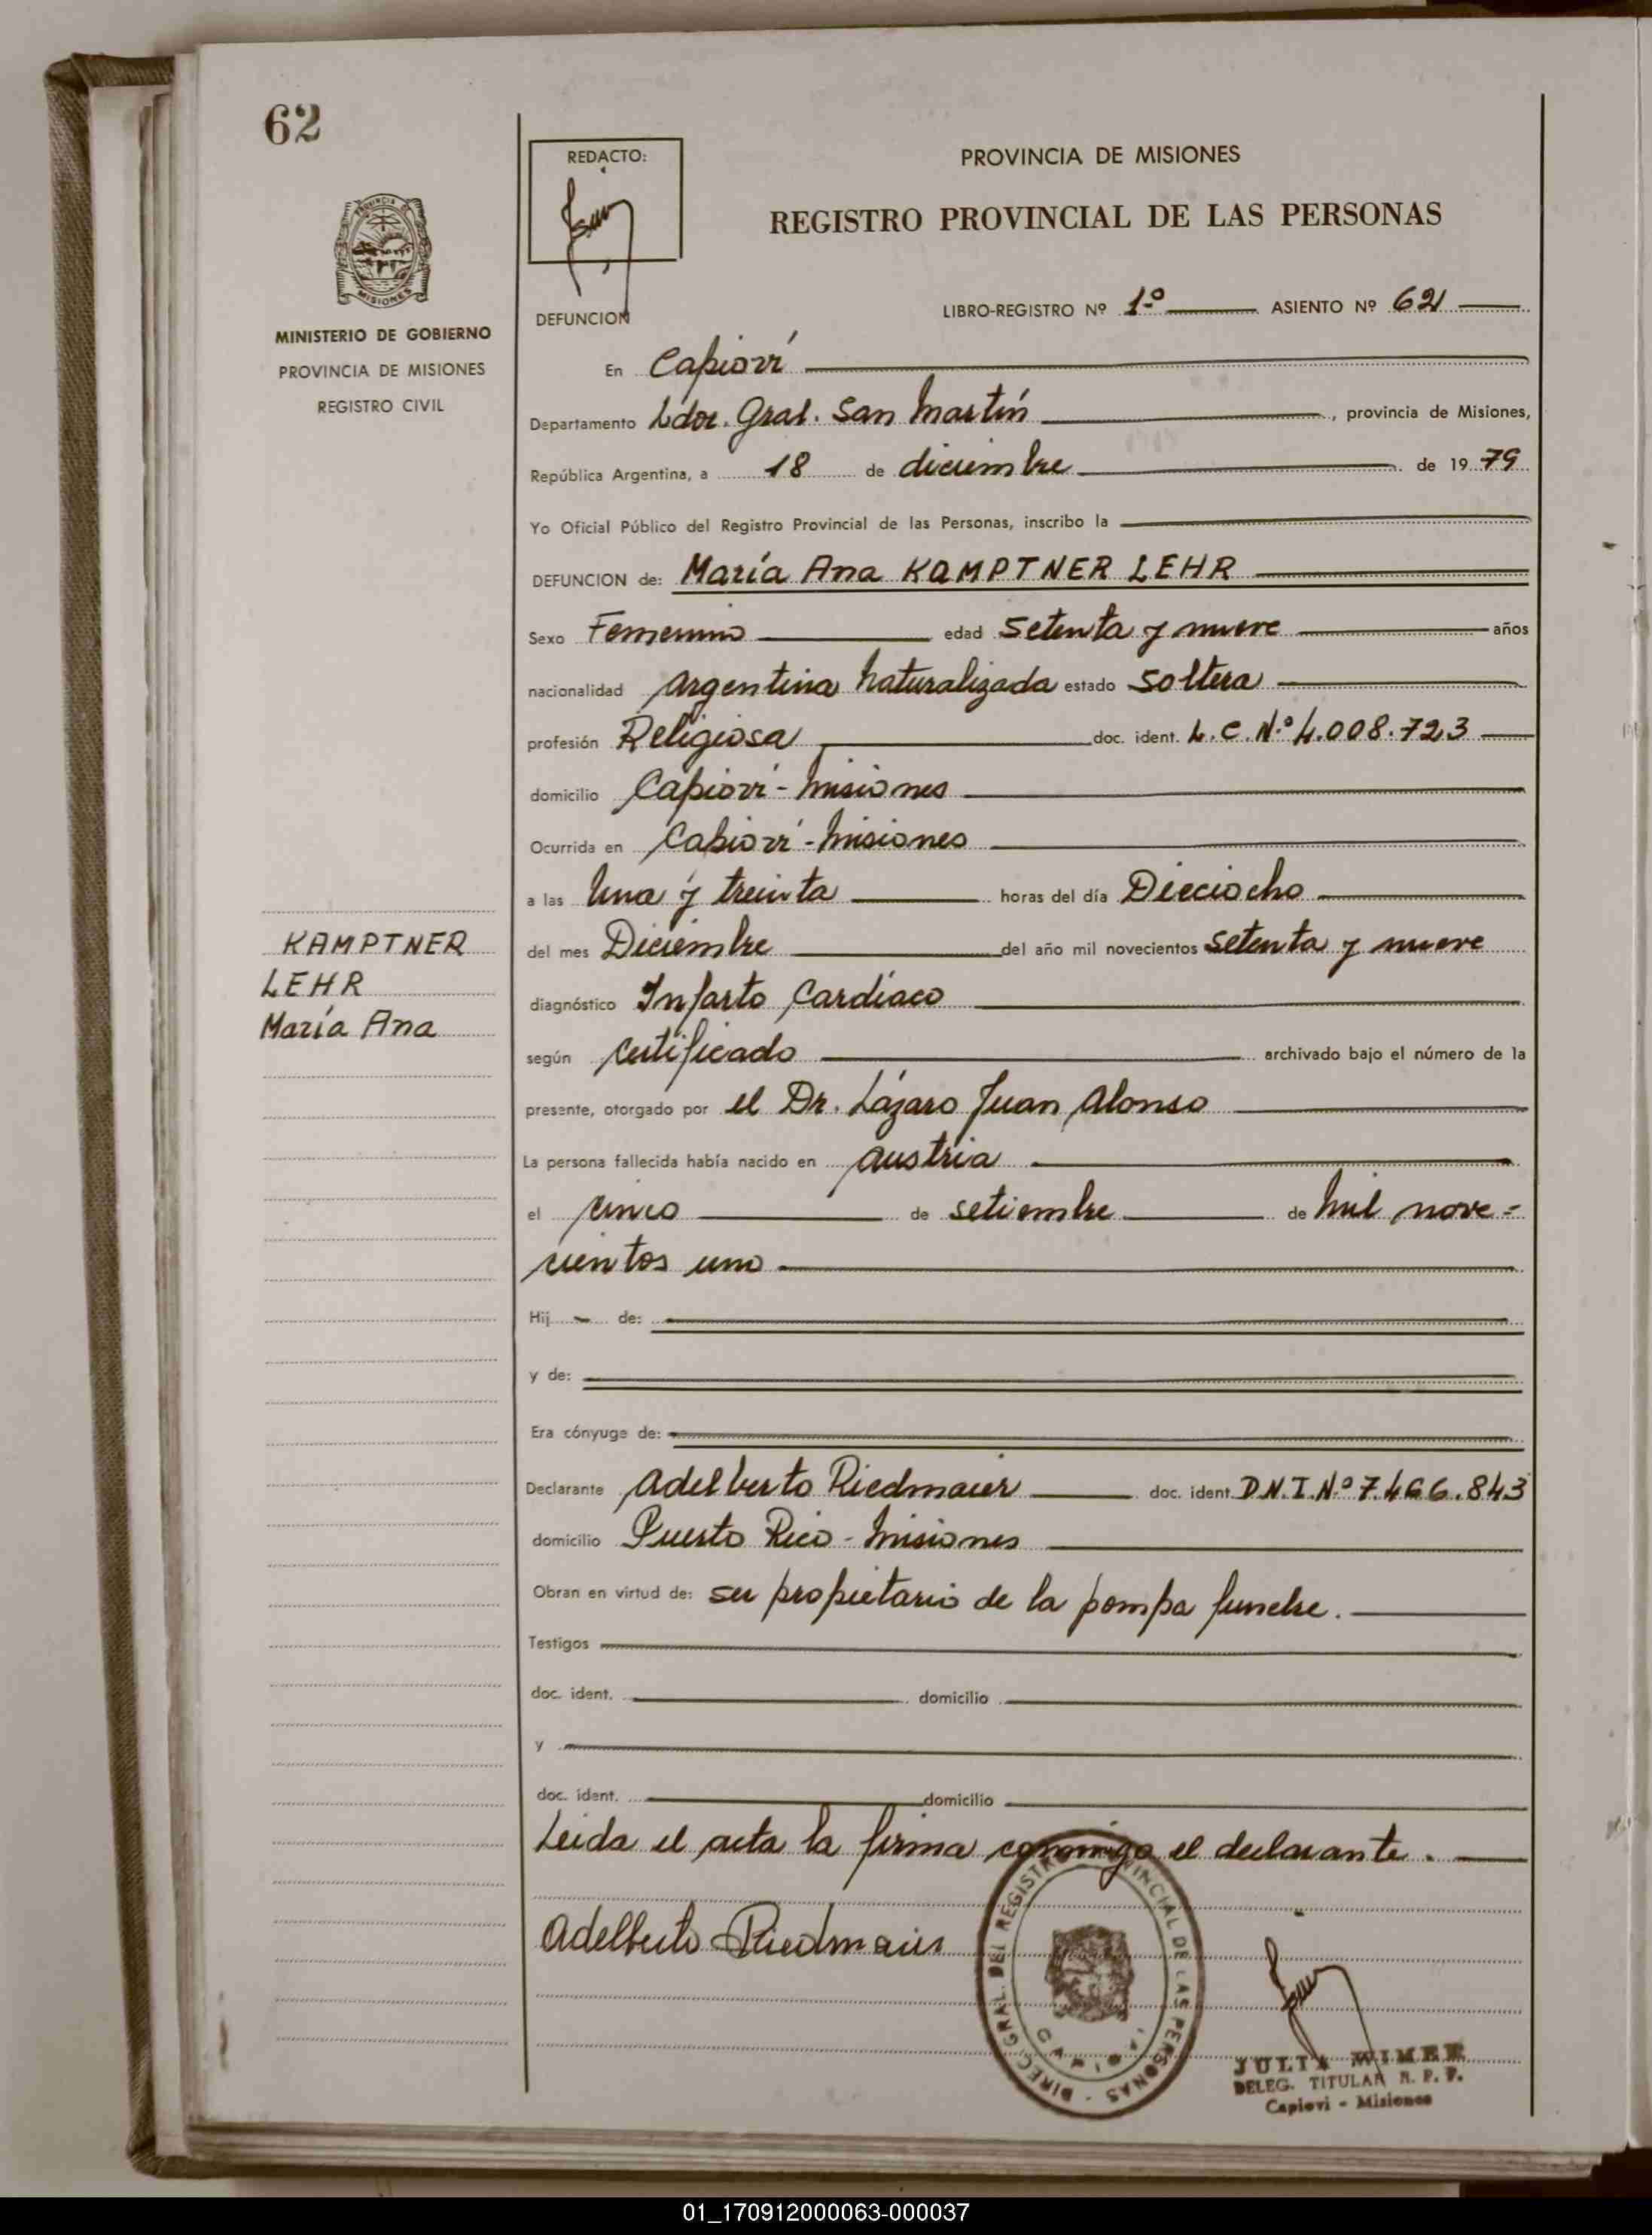 62
REDACTO:
PROVINCIA DE MISIONES
REGISTRO PROVINCIAL DE LAS PERSONAS
PROVINCIA DE MISIONES
MINISTERIO DE GOBIERNO
PROVINCIA DE MISIONES
REGISTRO CIVIL
DEFUNCION
LIBRO-REGISTRO Nº 1º ASIENTO Nº 62
En Capioví
Departamento Ldor. Gral. San Martín, provincia de Misiones,
República Argentina, a 18 de diciembre de 1979
Yo Oficial Público del Registro Provincial de las Personas, inscribo la
DEFUNCION de: María Ana KAMPTNER LEHR
Sexo Femenino edad setenta y nueve años
nacionalidad argentina naturalizada estado soltera
profesión Religiosa doc. ident. L.C.Nº 4.008.723
domicilio Capioví - Misiones
Ocurrida en Capioví - Misiones
a las Una y treinta horas del día Dieciocho
del mes Diciembre del año mil novecientos setenta y nueve
KAMPTNER
LEHR
María Ana
diagnóstico Infarto Cardíaco
según certificado archivado bajo el número de la
presente, otorgado por el Dr. Lázaro Juan Alonso
La persona fallecida había nacido en Austria
el cinco de setiembre de mil nove=
cientos uno
Hij - de:
y de:
Era cónyuge de:
Declarante Adelberto Riedmaier doc. ident. D.N.I.Nº 7.466.843
domicilio Puerto Rico - Misiones
Obran en virtud de: ser propietario de la pompa funebre.
Testigos
doc. ident. domicilio
y
doc. ident. domicilio
Leida el acta la firma conmigo el declarante.
Adelberto Riedmaier
DIREC. GRAL. DEL REGISTRO PROVINCIAL DE LAS PERSONAS -
CAPIOVI
JULIA WIMER
DELEG. TITULAR R. P. P.
Capiovi - Misiones
01_170912000063-000037